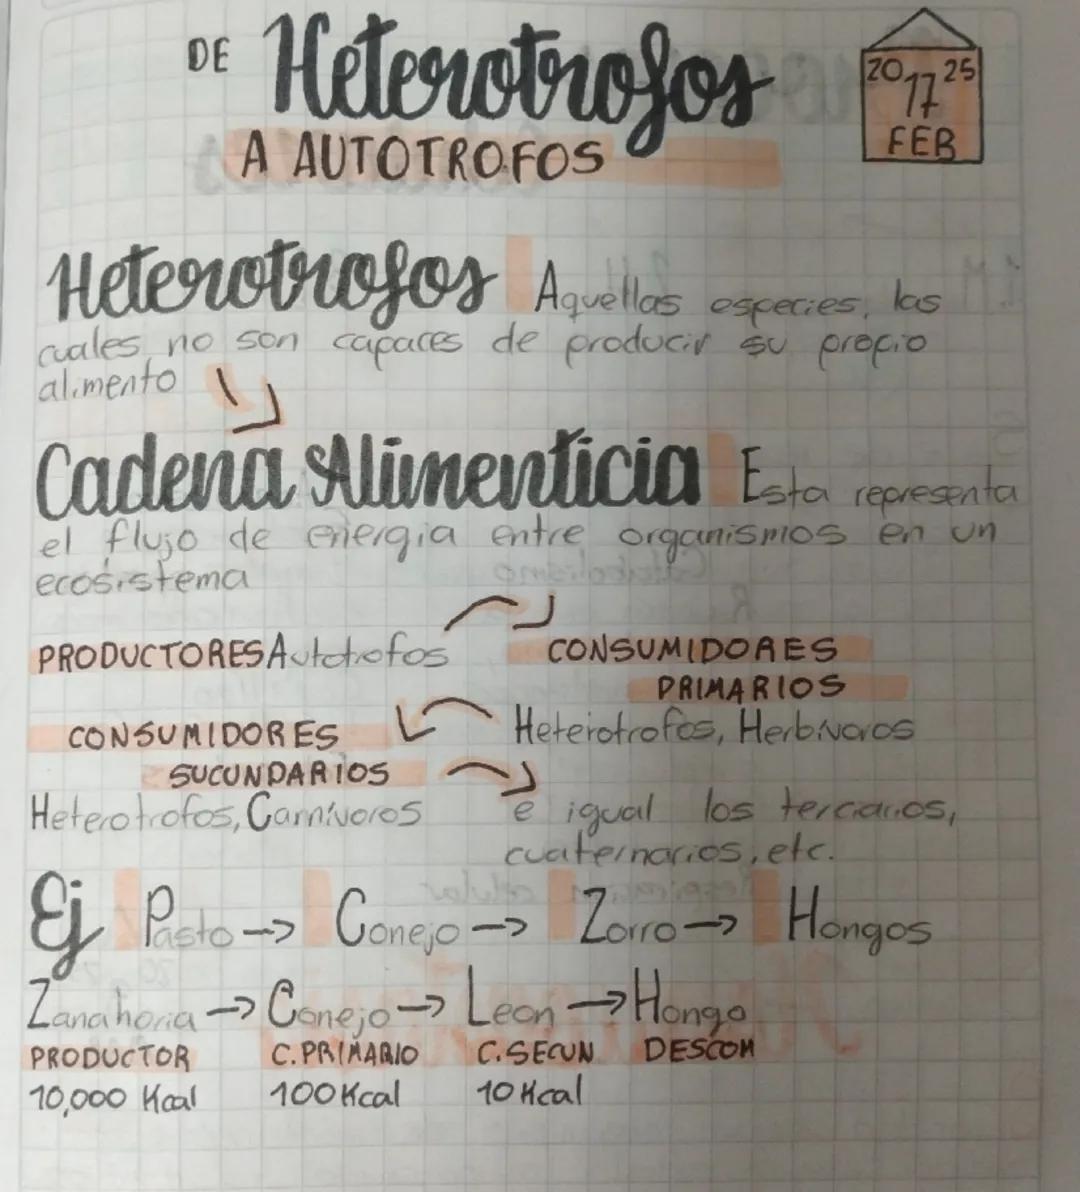 DE Heterotrofos
A AUTOTROFOS
20 17 25
FEB
Heterotrofos Aquellas especies, las
cuales, no son capaces de producir su propio
alimento
Cadena Alimenticia Esta representa
el flujo de energia entre organismos en un
ecosistema
PRODUCTORES Autotrofos
CONSUMIDORES
PRIMARIOS
Heterotrofos, Herbívoros
CONSUMIDORES
SUCUNDARIOS
Heterotrofos, Carnívoros
e igual los terciarios,
cuaternarios, etc.
Ej Pasto → Conejo → Zorro → Hongos
Zanahoria → Conejo → Leon → Hongo
PRODUCTOR C.PRIMARIO C.SECUN DESCOM
10,000 Kcal 100 Kcal 10 Kcal